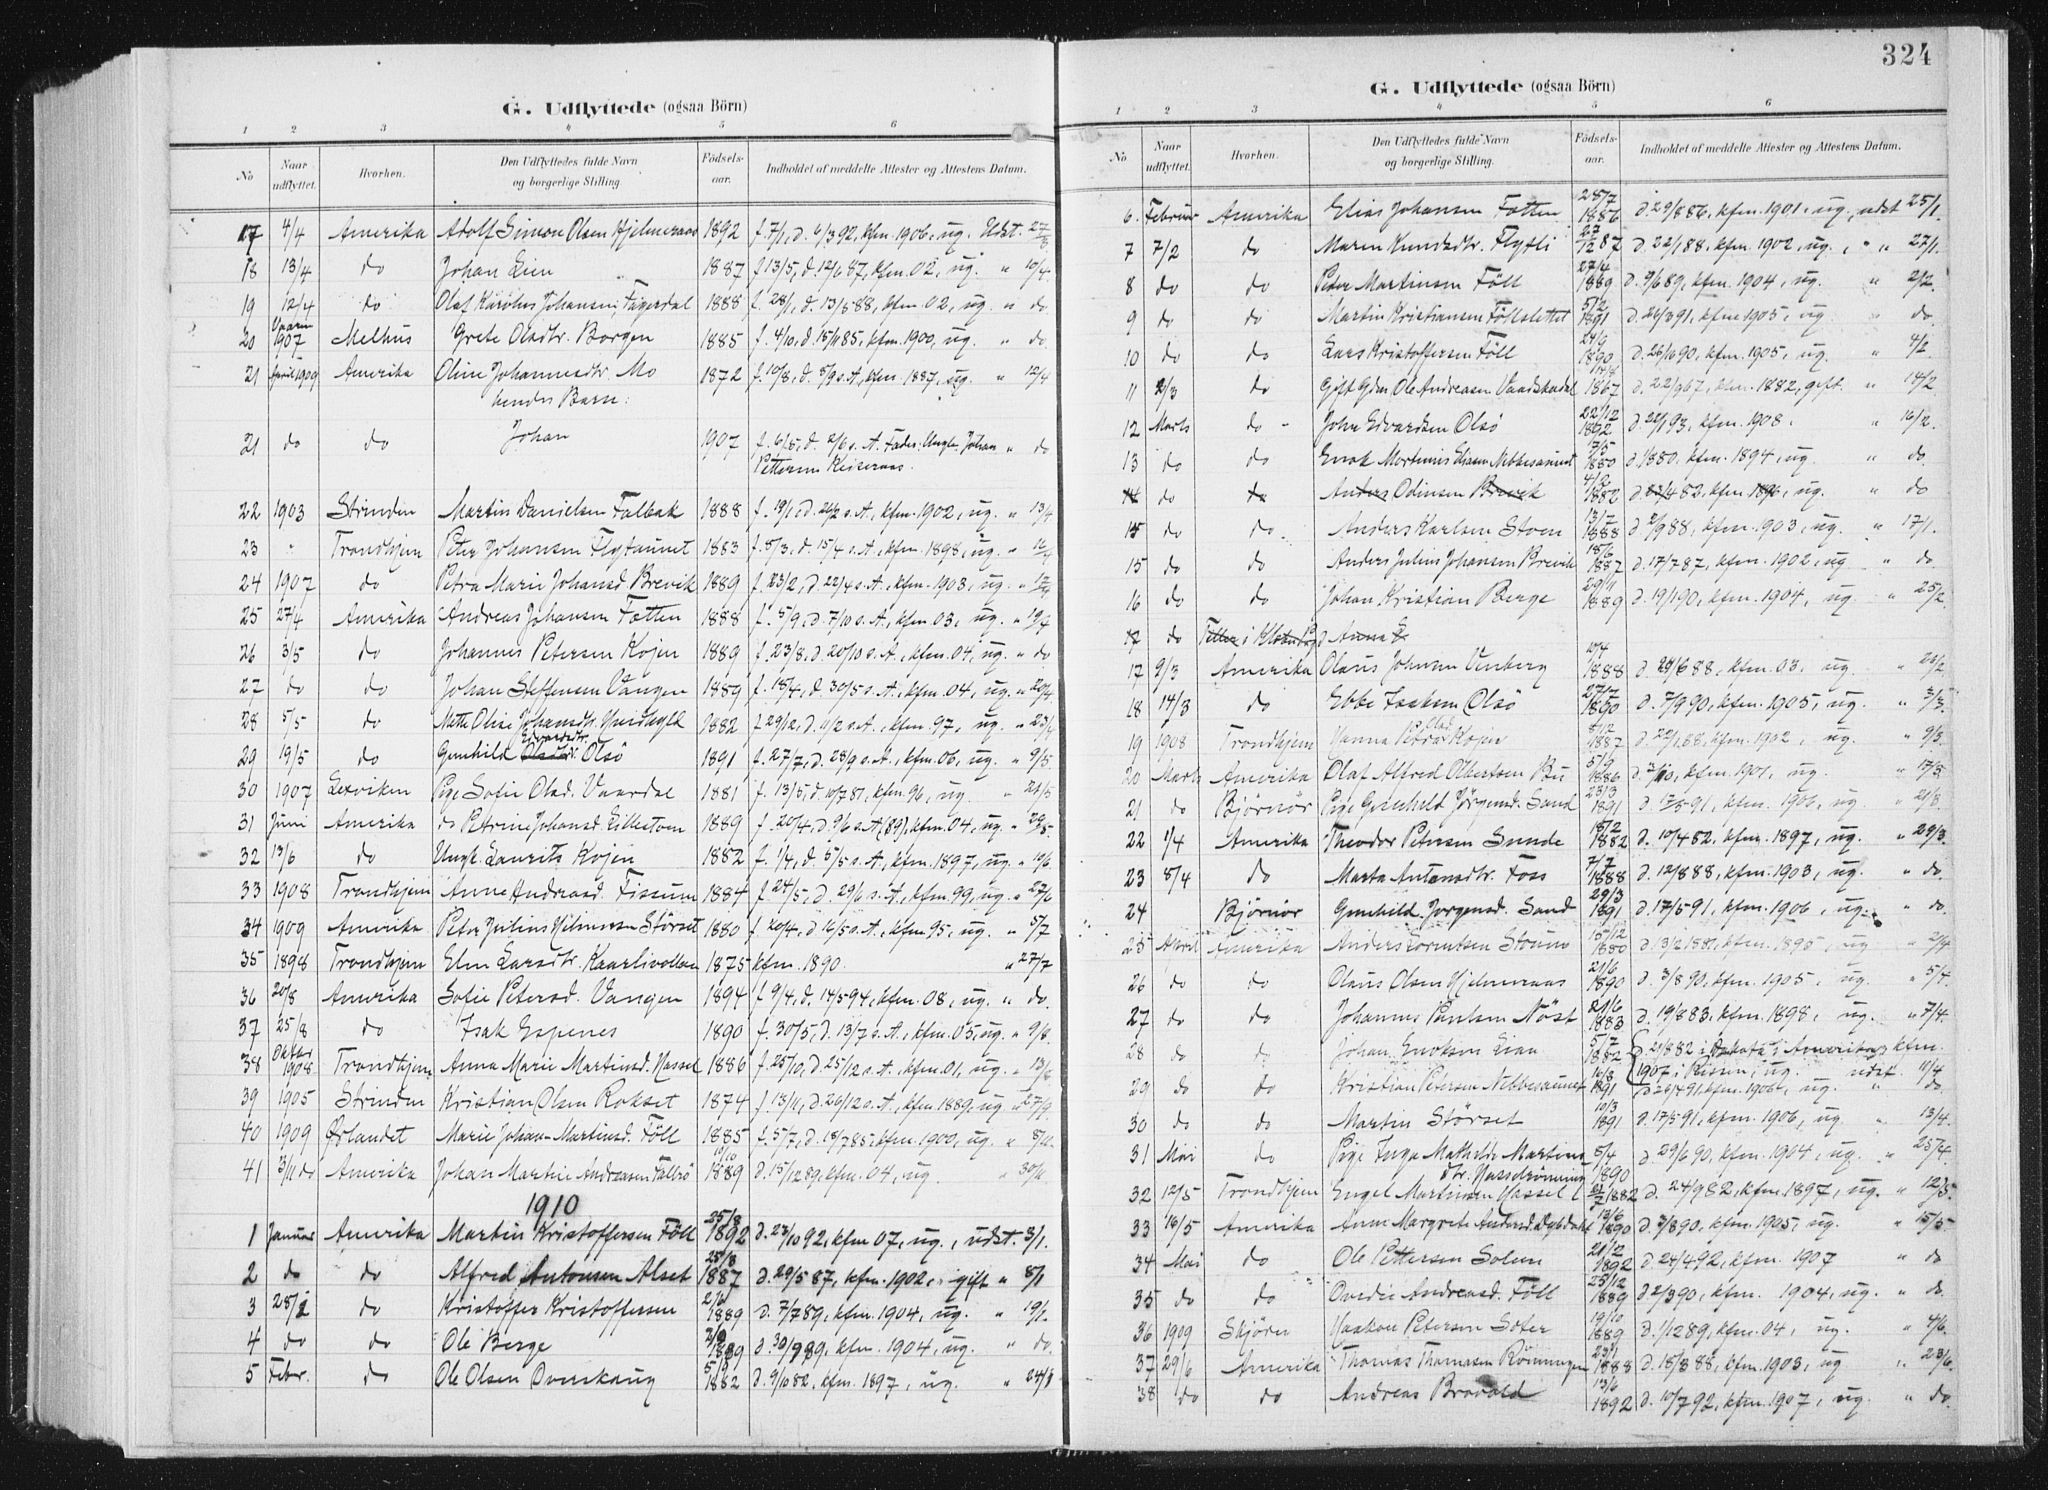 324
G. Udflyttede (ogsaa Börn)
1 2 3 4 5 6
No Naar udflyttet. Hvorhen. Den Udflyttedes fulde Navn og borgerlige Stilling. Fødsels-aar. Indholdet af meddelte Attester og Attestens Datum.
17 4/4 Amerika Adolf Simon Olsen Hjelmeraas 1892 f. 7/1, d. 6/3 92, kfm. 1906, ug. Udst. 27/3
18 13/4 do Johan Lien 1887 f 13/5, d. 12/6 87, kfm. 02, ug. " 10/4
19 12/4 do Olaf Karolius Johansen Fagerdal 1888 f. 28/1, d. 13/5 88, kfm. 02, ug " do
20 Vaaren 1907 Melhus Grete Olsdtr. Borgen 1885 f. 4/10, d. 15/11 85, kfm. 1900, ug. " do
21 April 1909 Amerika Oline Johannesdtr. Mo 1872 f. 10/8, d. 8/9 s. A, kfm. 1887, ug. " 12/4
hendes Barn:
21 do do Johan 1907 f. 6/5, d. 2/6 s. A. Fader: Ungk. Johan " do
Pettersen Reiseraas.
22 1903 Strinden Martin Danielsen Falbak 1888 f. 19/1, d. 26/2 s. A., kfm. 1902, ug. " 13/4
23 " Trondhjem Peter Johansen Flytaunet 1883 f. 5/3, d. 15/4 s. A., kfm. 1898, ug. "
24 1907 do Petra Marie Johansd. Brevik 1889 f. 23/2, d. 22/4 s. A., kfm. 1903, ug. " 17/4
25 27/4 Amerika Andreas Johansen Fatten 1888 f. 5/9, d. 7/10 s. A., kfm. 03, ug. " 19/4
26 3/5 do Johannes Petersen Kojen 1889 f. 23/8, d. 20/10 s. A., kfm. 04, ug. " do
27 do do Johan Steffensen Vangen 1889 f. 18/4, d. 30/5 s. A., kfm. 04, ug. " 20/4
28 5/5 do Mette Olise Johansdtr. 1882 f 29/12, d. 11/2 s. A., kfm. 97, ug. " 23/4
29 19/5 do Gunhild Edvardsdtr. Olsö 1891 f. 27/7, d. 28/9 s. A., kfm. 06, ug. " 9/5
30 1907 Lexviken Pige Sofie Olsd. Vaardal 1881 f. 13/5, d. 10/7 81, kfm. 96, ug " 21/5
31 Juni Amerika do Petrine Johansd. Lillestoen 1889 f. 20/4, d. 9/6 s. A (89), kfm. 04, ug. " 29/5
32 13/6 do Ungk. Laurits Kojen 1882 f. 1/4, d. 5/5 s. A., kfm. 1897, ug. " 10/6
33 1908 Trondhjem Anne Andreasd. Fissum 1884 f. 24/5, d. 29/6 s. A., kfm. 99, ug. " 27/6
34 1909 Amerika Peter Julius Hilmersen Störset 1880 f 20/4, d. 16/5 s. A., kfm. 95, ug. " 5/7
35 1898 Trondhjem Elen Larsdtr. Kaarlivollan 1875 kfm. 1890. " 27/7
36 20/8 Amerika Sofie Petersd. Vangen 1894 f 9/4, d. 14/5 94, kfm. 08, ug. " do.
37 25/8 do Isak Espenes 1890 f. 30/5, d. 13/7 s. A., kfm. 05, ug. " 9/8
38 Oktbr 1908 Trondhjem Anna Marie Martinsd. Hassel 1886 f. 25/10, d. 25/12 s. A., kfm. 01, ug.
39 1905 Strinden Kristian Olsen Rokset 1874 f. 13/11, d. 26/12 s. A., kfm. 1889, ug " 27/9
40 1909 Ørlandet Marie Johan-Martinsd. Föll 1885 f. 5/7, d. 18/7 85, kfm. 1900, ug. "
41 3/11 do Amerika Johan Martin Andreasen Fallsö 10/10 1889 d. 15/12 89, kfm. 04, ug. "
1910
1 Januar Amerika Martin Kristoffersen Föll 25/8 1892 d. 23/10 92, kfm 07, ug., udst. 3/1.
2 do do Alfred Antonsen Alset 25/3 1887 d. 29/5 87, kfm. 1902, gift " 8/1
3 25/2 do Kristoffer Kristoffersen 1889 d. 7/7 89, kfm. 1904, ug. " 19/1
4 do do Ole Berge 1889 d. 30/9 89, kfm. 1904, ug. " do.
5 Febr. do Ole Olsen Overskaug 1882 d. 9/10 82, kfm. 1897, ug. " 24/1
G. Udflyttede (ogsaa Börn)
1 2 3 4 5 6
No Naar udflyttet. Hvorhen. Den Udflyttedes fulde Navn og borgerlige Stilling. Födsels-aar. Indholdet af meddelte Attester og Attestens Datum.
6. Februar Amerika Elias Johansen Fatten 28/7 1886 d. 29/8 86, kfm. 1901, ug., udst 25/1.
7 7/2 do Maren Knudsdtr. Flytli 27/12 87 d. 22/1 88, kfm. 1902, ug., " " 27/1.
8 do do Peter Martinsen Föll 27/4 1889 d. 9/6 89, kfm. 1904, ug. " 2/2.
9 do do Martin Kristiansen Föllslettet 5/2 1891 d. 26/3 91, kfm 1905, ug. " do.
10 do do Lars Kristoffersen Föll 24/9 1890 d. 26/10 90, kfm. 1905, ug. " 4/2.
11 2/3 do Gift Gdm. Ole Andreasen Vaadskardal 14/8 1867 d. 22/9 67, kfm. 1882, gift. " 14/2
12 Marts do John Edvardsen Olsö 22/12 1892 d. 22/1 93, kfm. 1908. " 16/2.
13 do do Enok Mortinus Nebbesaunet 17/5 1880 d. 1880, kfm. 1894, ug. " do.
14 do do Anders Odinsen Brevik 4/2 1882 d. 23/4 82, kfm. 1896, ug. " do
15 do do. Anders Karlsen Stoen 13/7 1888 d. 2/9 88, kfm. 903, ug. " 17/1.
15 do do Anders Julius Johansen Brevik 18/6 1887 d. 17/7 87, kfm. 1902, ug " do.
16 do do Johan Kristian Berge 29/11 1889 d. 19/1 90, kfm. 1904, ug. " 25/2.
17 do Tiller i Anna
17 9/3 Amerika Olaus Johnsen Venberg 10/4 1888 d. 24/6 88, kfm. 03, ug. " 22/2
18 14/3 do Ebbe Isaksen Olsö 27/7 1890 d. 7/9 90, kfm. 1905, ug. " 3/3.
19 1908 Trondhjem Hanna Petra Olsd. Kojen 8/12 1887 d. 22/1 88, kfm. 1902, ug. " 9/3.
20 Marts Amerika Olaf Alfred Olbertsen Bu 5/9 1886 d. 3/10, kfm. 1901, ug. " 13/3.
21 do Bjørnør Pige Gunhild Jørgensd. Sand 23/3 1891 d. 17/5 91, kfm. 1906, ug " 21/3.
22 1/4 Amerika Theodor Petersen Sunde 18/2 1882 d. 10/4 82, kfm. 1897, ug. " 29/3.
23 8/4 do Marta Antonsdtr. Foss 7/7 1888 d. 12/8 88, kfm. 1903, ug. " do.
24 Bjørnør Gunhild Jørgensd. Sand 29/3 1891 d. 17/5 91, kfm. 1906, ug. " do.
25 April Amerika Anders Lorentsen Stoen 15/12 1880 d. 13/2 1881, kfm. 1895, ug " 2/4
26 do do Olaus Olsen Hjelmeraas 21/6 1890 d. 3/8 90, kfm. 1905, ug. " 5/4.
27 do do Johannes Paulsen Nöst 21/6 1883 d. 19/8 83, kfm. 1898, ug. " 7/4.
28 do do Johan Enoksen Lian 5/7 1882 d. 21/8 82 i Dakota i Amerika, kfm.
1907 i Rissen, ug. udst. 11/4
29 do do Kristian Petersen Nebbesaunet 16/3 1891 d. 26/4 91, kfm. 1906, ug. " do.
30 do do Martin Störset 10/3 1891 d. 17/5 91, kfm. 1906, ug " 13/4.
31 Mai do Pige Inga Mathilde Martins- 5/4 1890 d. 29/6 90, kfm. 1904, ug. " 25/4.
dtr. Hasselrönningen
32 12/5 Trondhjem Engel Martinsen Hassel 1882 d. 24/9 82, kfm. 1897, ug. " 12/5.
33 16/5 Amerika Anne Margrete Andersd. Dybdahl 13/6 1890 d. 3/8 90, kfm. 1905, ug. " 15/5
34 Mai do Ole Pettersen Solem 1892 d. 24/4 92, kfm. 1907 " do
35 do do Ovedie Andreasd. Föll 25/12 1889 d 2/3 90, kfm. 1904, ug. " do.
36 1909 Skjørn Haakon Petersen Sæter 19/10 1889 d. 1/12 89, kfm. 04, ug. " 4/6.
37 29/6 Amerika Thomas Thomasen Rönningen 23/1 1888 d. 18/3 88, kfm. 1903, ug " 23/6.
38 do do Andreas Brovold 13/6 1892 d. 10/7 92, kfm. 1907, ug. " do.